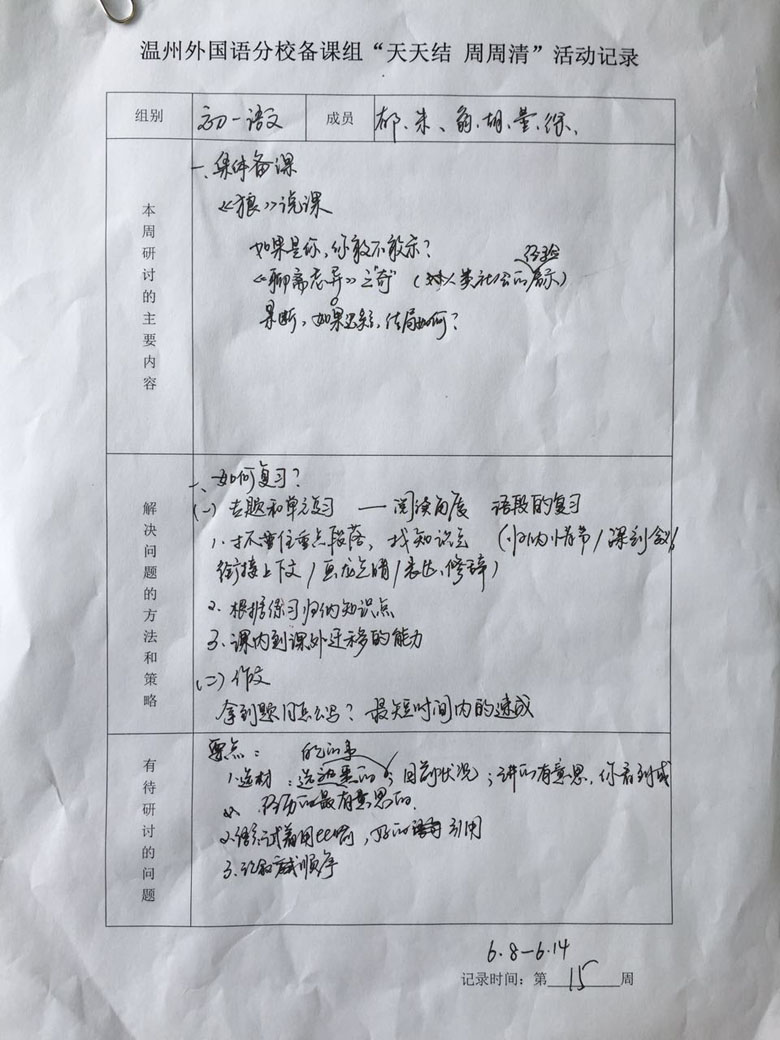 温州外国语分校备课组“天天结 周周清”活动记录
组别 初一语文 成员 郁、朱、胡、董、徐、
本周研讨的主要内容
一、集体备课
《狼》说课
如果是你,你敢不敢杀?
经验
《聊斋志异》之“奇”(对人类社会的启示)
果断,如果迟疑,结局如何?
解决问题的方法和策略
一、如何复习?
(一)专题和单元复习 — 阅读角度 语段的复习
1、抓住重点段落,找知识点(归纳情节/深刻含义
衔接上下文/画龙点睛/表达、修辞)
2、根据练习归纳知识点
3、课内到课外迁移的能力
(二)作文
拿到题目怎么写?最短时间内的速成
有待研讨的问题
要点:
1、选材:选 的 目前状况;讲的有意思,你看到或
经历的最有意思的。
2、语言试着用比喻,好的 引用
3、记叙 顺序
6.8—6.14
记录时间:第15周